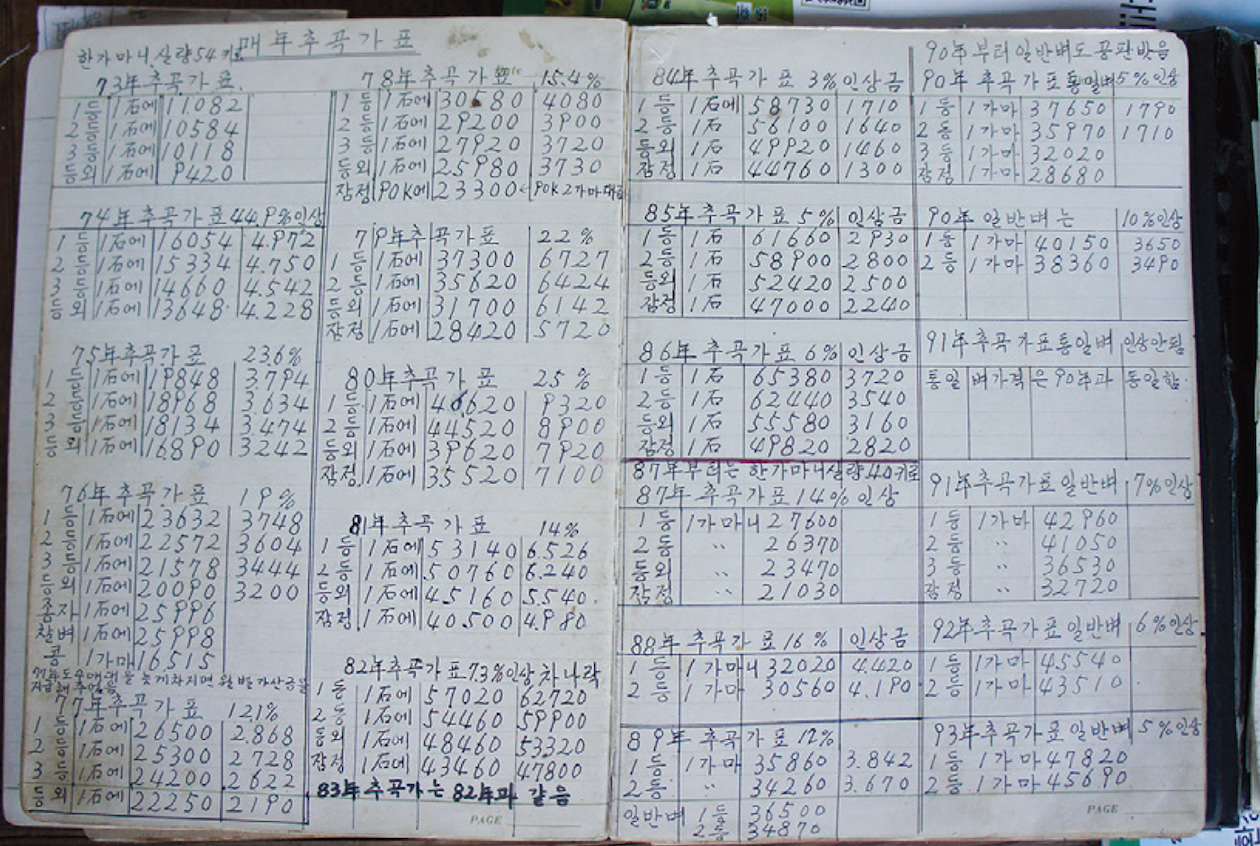 매年추곡가표
한가마니실량54키로
73年추곡가표.
1등 1石에 11.082
2등 1石에 10584
3등 1石에 10118
등외 1石에 9420
74年추곡가표44.9%인상
1등 1石에 16054 4.972
2등 1石에 15334 4.750
3등 1石에 14660 4.542
등외 1石에 13648 4.228
75年추곡가표 23.6%
1등 1石에 19848 3.794
2등 1石에 18968 3.634
3등 1石에 18134 3.474
등외 1石에 16890 3242
76年추곡가표 19%
1등 1石에 23632 3748
2등 1石에 22572 3604
3등 1石에 21578 3444
등외 1石에 20090 3200
종자 1石에 25996
찰벼 1石에 25998
콩 1가마 16.515
77年추곡가표 12.1%
1등 1石에 26500 2.868
2등 1石에 25300 2728
3등 1石에 24200 2.622
등외 1石에 22250 2190
78年추곡가표 15.4%
1등 1石에 30580 4080
2등 1石에 29200 3900
3등 1石에 27920 3720
등외 1石에 25980 3730
잠정 90K에 23300 90K2가마대금
79年추곡가표 22%
1등 1石에 37300 6727
2등 1石에 35620 6424
등외 1石에 31700 6142
잠정 1石에 28420 5720
80年추곡가표 25%
1등 1石에 46620 9320
2등 1石에 44520 8900
등외 1石에 39620 7920
잠정 1石에 35520 7100
81年추곡가표 14%
1등 1石에 53140 6.526
2등 1石에 50760 6.240
등외 1石에 45160 5.540.
잠정 1石에 40.500 4.980
82年추곡가표7.3%인상 차나락
1등 1石에 57020 62720
2등 1石에 54460 59900
등외 1石에 48460 53320
잠정 1石에 43460 47800
83年추곡가는 82年과 같음
PAGE
84年추곡가표 3% 인상금
1등 1石에 58730 1710
2등 1石 56100 1640
등외 1石 49920 1460
잠정 1石 44760 1300
85年추곡가표 5% 인상금
1등 1石 61660 2930
2등 1石 58900 2800
등외 1石 52420 2500
잠정 1石 47000 2240
86年추곡가표 6% 인상금
1등 1石 65380 3720
2등 1石 62440 3540
등외 1石 55580 3160
잠정 1石 49820 2820
87年부터는 한가마니실량40키로
87年추곡가표14%인상
1등 1가마니 27600
2등 〃 26370
등외 〃 23470
잠정 〃 21030
88年추곡가표16% 인상금
1등 1가마니 32020 4.420
2등 1가마 30560 4.190
89年추곡가표12%
1등 1가마 35860 3.842
2등 〃 34260 3.670
일반벼 1등 36500
2등 34870
90年부터일반벼도공판받음
90年추곡가표통일벼5%인상
1등 1가마 37650 1790
2등 1가마 35970 1710
3등 1가마 32020
잠정 1가마 28680
90年일반벼는 10%인상
1등 1가마 40150 3650
2등 1가마 38360 3490
91年추곡가표통일벼 인상안됨
통일벼가격은90年과 동일함
91年추곡가표일반벼 7%인상
1등 1가마 42960
2등 〃 41050
3등 〃 36530
잠정 〃 32720
92年추곡가표일반벼 6%인상
1등 1가마 45540
2등 1가마 43510
93年추곡가표일반벼 5%인상
1등 1가마 47820
2등 1가마 45690
PAGE